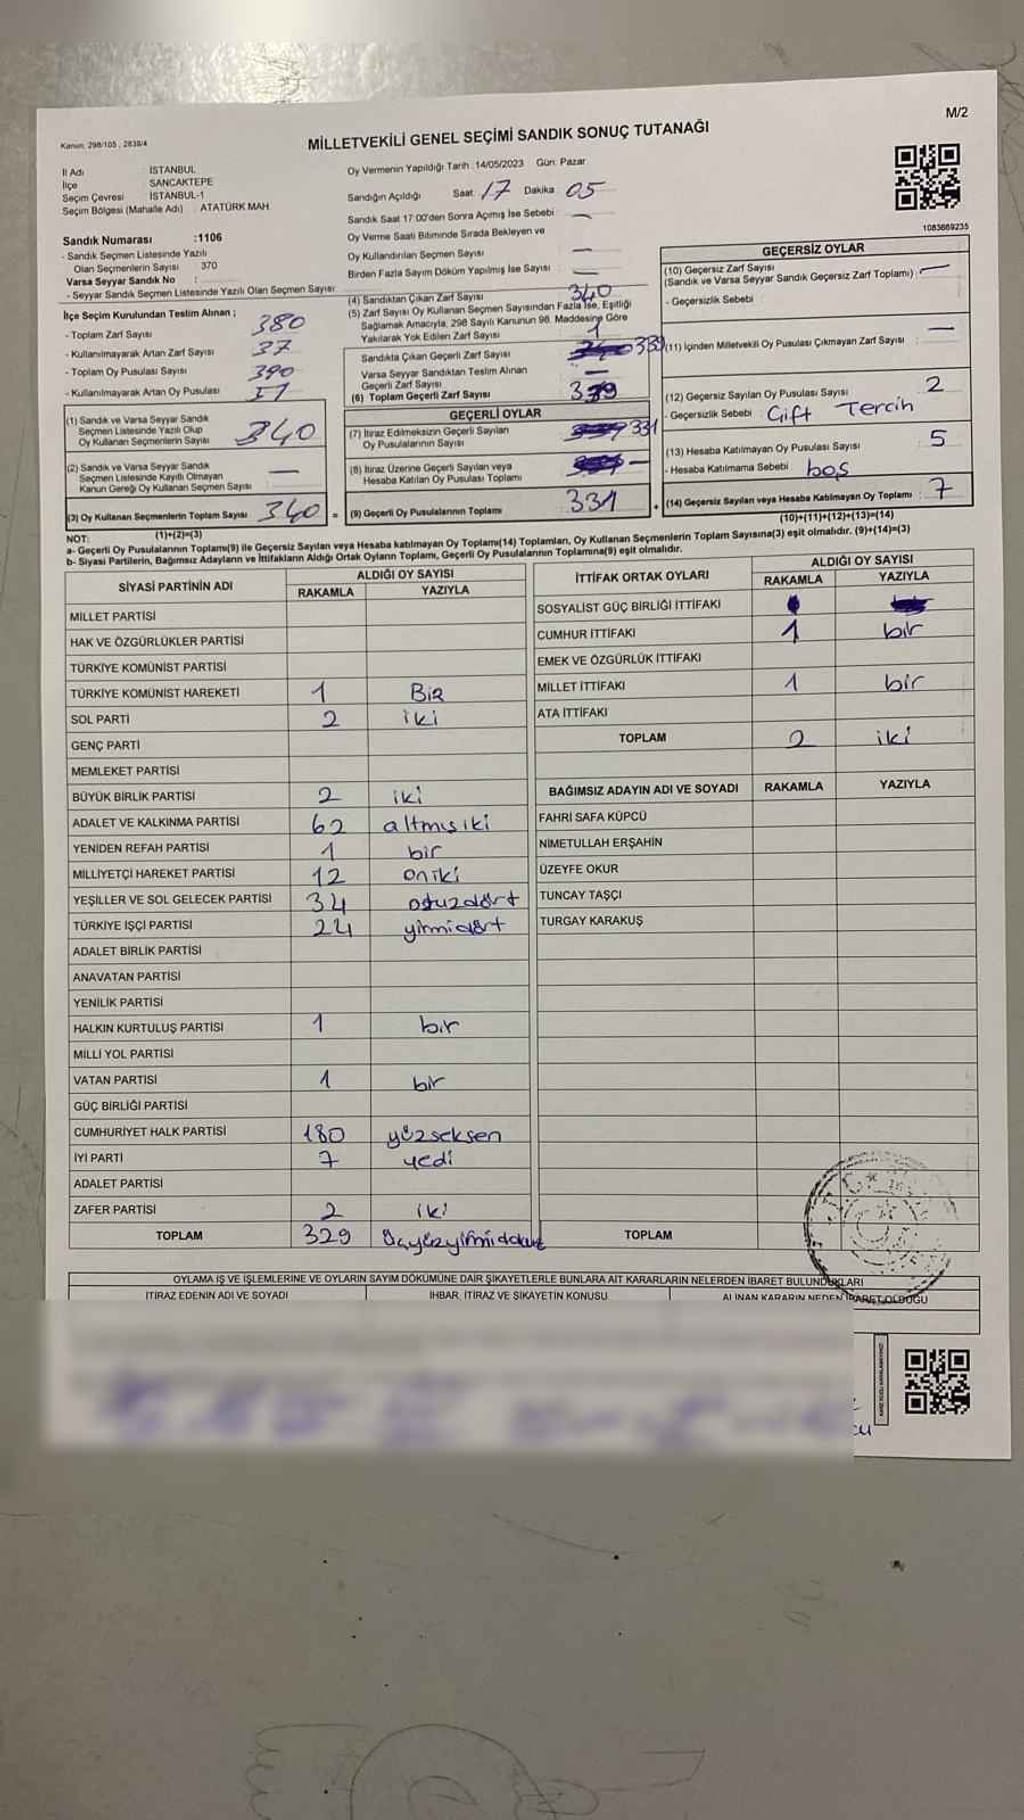 M/2
Kanun: 298/105 , 2839/4
MİLLETVEKİLİ GENEL SEÇİMİ SANDIK SONUÇ TUTANAĞI
İl Adı İSTANBUL
İlçe SANCAKTEPE
Seçim Çevresi İSTANBUL-1
Seçim Bölgesi (Mahalle Adı) : ATATÜRK MAH.
Sandık Numarası :1106
- Sandık Seçmen Listesinde Yazılı
Olan Seçmenlerin Sayısı 370
Varsa Seyyar Sandık No :
- Seyyar Sandık Seçmen Listesinde Yazılı Olan Seçmen Sayısı
İlçe Seçim Kurulundan Teslim Alınan ;
- Toplam Zarf Sayısı 380
- Kullanılmayarak Artan Zarf Sayısı 37
- Toplam Oy Pusulası Sayısı 390
- Kullanılmayarak Artan Oy Pusulası 51
(1) Sandık ve Varsa Seyyar Sandık
Seçmen Listesinde Yazılı Olup
Oy Kullanan Seçmenlerin Sayısı 340
(2) Sandık ve Varsa Seyyar Sandık
Seçmen Listesinde Kayıtlı Olmayan
Kanun Gereği Oy Kullanan Seçmen Sayısı —
(3) Oy Kullanan Seçmenlerin Toplam Sayısı 340 =
(1)+(2)=(3)
Oy Vermenin Yapıldığı Tarih : 14/05/2023 Gün: Pazar
Sandığın Açıldığı Saat 17 Dakika 05
Sandık Saat 17:00'den Sonra Açılmış İse Sebebi —
Oy Verme Saati Bitiminde Sırada Bekleyen ve
Oy Kullandırılan Seçmen Sayısı —
Birden Fazla Sayım Döküm Yapılmış İse Sayısı —
(4) Sandıktan Çıkan Zarf Sayısı 340
(5) Zarf Sayısı Oy Kullanan Seçmen Sayısından Fazla İse, Eşitliği
Sağlamak Amacıyla, 298 Sayılı Kanunun 98. Maddesine Göre
Yakılarak Yok Edilen Zarf Sayısı 1
Sandıkta Çıkan Geçerli Zarf Sayısı 339
Varsa Seyyar Sandıktan Teslim Alınan
Geçerli Zarf Sayısı —
(6) Toplam Geçerli Zarf Sayısı 339
GEÇERLİ OYLAR
(7) İtiraz Edilmeksizin Geçerli Sayılan
Oy Pusulalarının Sayısı 331
(8) İtiraz Üzerine Geçerli Sayılan veya
Hesaba Katılan Oy Pusulası Toplamı —
(9) Geçerli Oy Pusulalarının Toplamı 331
1083669235
GEÇERSİZ OYLAR
(10) Geçersiz Zarf Sayısı
(Sandık ve Varsa Seyyar Sandık Geçersiz Zarf Toplamı) : —
- Geçersizlik Sebebi :
(11) İçinden Milletvekili Oy Pusulası Çıkmayan Zarf Sayısı : —
(12) Geçersiz Sayılan Oy Pusulası Sayısı : 2
- Geçersizlik Sebebi : Çift Tercih
(13) Hesaba Katılmayan Oy Pusulası Sayısı 5
- Hesaba Katılmama Sebebi boş
(14) Geçersiz Sayılan veya Hesaba Katılmayan Oy Toplamı : 7
(10)+(11)+(12)+(13)=(14)
NOT:
a- Geçerli Oy Pusulalarının Toplamı(9) ile Geçersiz Sayılan veya Hesaba katılmayan Oy Toplamı(14) Toplamları, Oy Kullanan Seçmenlerin Toplam Sayısına(3) eşit olmalıdır. (9)+(14)=(3)
b- Siyasi Partilerin, Bağımsız Adayların ve İttifakların Aldığı Ortak Oyların Toplamı, Geçerli Oy Pusulalarının Toplamına(9) eşit olmalıdır.
SİYASİ PARTİNİN ADI ALDIĞI OY SAYISI
RAKAMLA YAZIYLA
MİLLET PARTİSİ
HAK VE ÖZGÜRLÜKLER PARTİSİ
TÜRKİYE KOMÜNİST PARTİSİ
TÜRKİYE KOMÜNİST HAREKETİ 1 Bir
SOL PARTİ 2 iki
GENÇ PARTİ
MEMLEKET PARTİSİ
BÜYÜK BİRLİK PARTİSİ 2 iki
ADALET VE KALKINMA PARTİSİ 62 altmışiki
YENİDEN REFAH PARTİSİ 1 bir
MİLLİYETÇİ HAREKET PARTİSİ 12 oniki
YEŞİLLER VE SOL GELECEK PARTİSİ 34 otuzdört
TÜRKİYE İŞÇİ PARTİSİ 24 yirmidört
ADALET BİRLİK PARTİSİ
ANAVATAN PARTİSİ
YENİLİK PARTİSİ
HALKIN KURTULUŞ PARTİSİ 1 bir
MİLLİ YOL PARTİSİ
VATAN PARTİSİ 1 bir
GÜÇ BİRLİĞİ PARTİSİ
CUMHURİYET HALK PARTİSİ 180 yüzseksen
İYİ PARTİ 7 yedi
ADALET PARTİSİ
ZAFER PARTİSİ 2 iki
TOPLAM 329 üçyüzyirmidokuz
İTTİFAK ORTAK OYLARI ALDIĞI OY SAYISI
RAKAMLA YAZIYLA
SOSYALİST GÜÇ BİRLİĞİ İTTİFAKI
CUMHUR İTTİFAKI 1 bir
EMEK VE ÖZGÜRLÜK İTTİFAKI
MİLLET İTTİFAKI 1 bir
ATA İTTİFAKI
TOPLAM 2 iki
BAĞIMSIZ ADAYIN ADI VE SOYADI RAKAMLA YAZIYLA
FAHRİ SAFA KÜPCÜ
NİMETULLAH ERŞAHİN
ÜZEYFE OKUR
TUNCAY TAŞÇI
TURGAY KARAKUŞ
TOPLAM
OYLAMA İŞ VE İŞLEMLERİNE VE OYLARIN SAYIM DÖKÜMÜNE DAİR ŞİKAYETLERLE BUNLARA AİT KARARLARIN NELERDEN İBARET BULUNDUKLARI
İTİRAZ EDENİN ADI VE SOYADI İHBAR, İTİRAZ VE ŞİKAYETİN KONUSU ALINAN KARARIN NEDEN İBARET OLDUĞU